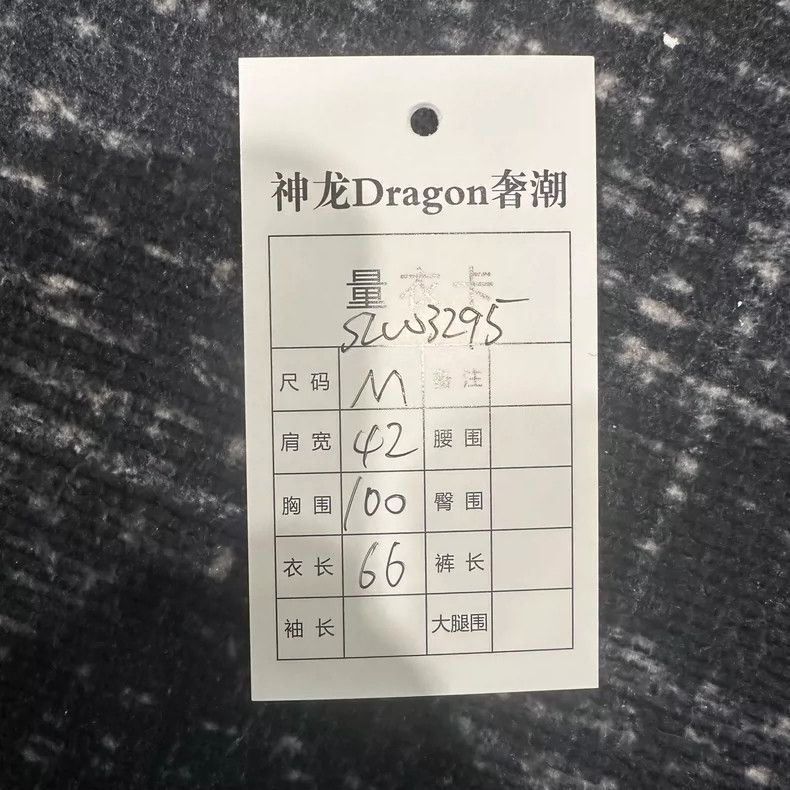 神龙Dragon奢潮
量衣卡
SLW3295
尺码 M 备注
肩宽 42 腰围
胸围 100 臀围
衣长 66 裤长
袖长 大腿围